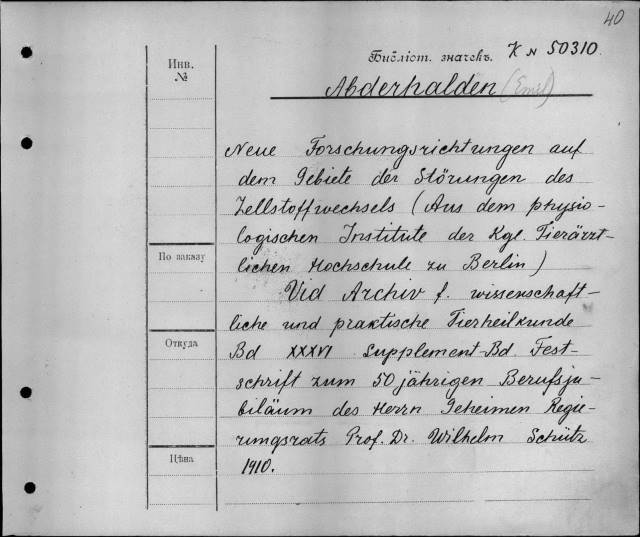 40
Библіот. значекъ. K N 50310.
Инв.
№
Abderhalden (Emil)
Neue Forschungsrichtungen auf
dem Gebiete der Störungen des
Zellstoffwechsels (Aus dem physio-
logischen Institute der Kgl. Tierärzt-
lichen Hochschule zu Berlin)
По заказу
Vid Archiv f. wissenschaft-
liche und praktische Tierheilkunde
Откуда
Bd XXXVI Supplement-Bd. Fest-
schrift zum 50 jährigen Berufsju-
biläum des Herrn Geheimen Regie-
rungsrats Prof. Dr. Wilhelm Schütz
Цѣна
1910.